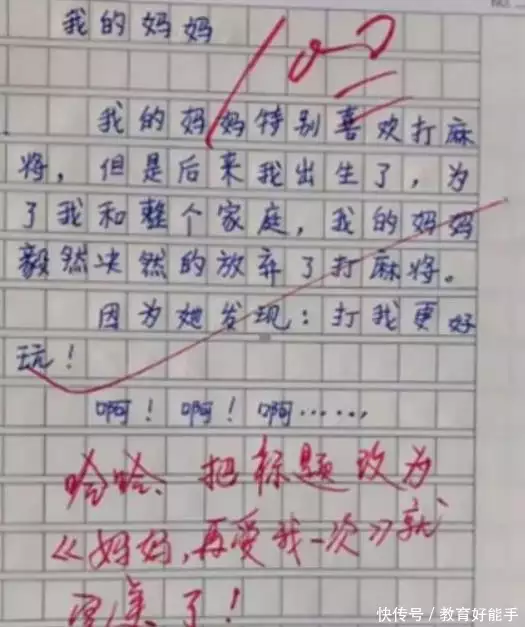 我的妈妈
我的妈妈特别喜欢打麻
将，但是后来我出生了，为
了我和整个家庭，我的妈妈
毅然决然的放弃了打麻将。
因为她发现：打我更好
玩！
啊！啊！啊……，
哈哈、把标题改为
《妈妈，再爱我一次》就
完美了！
快传号／教育好能手